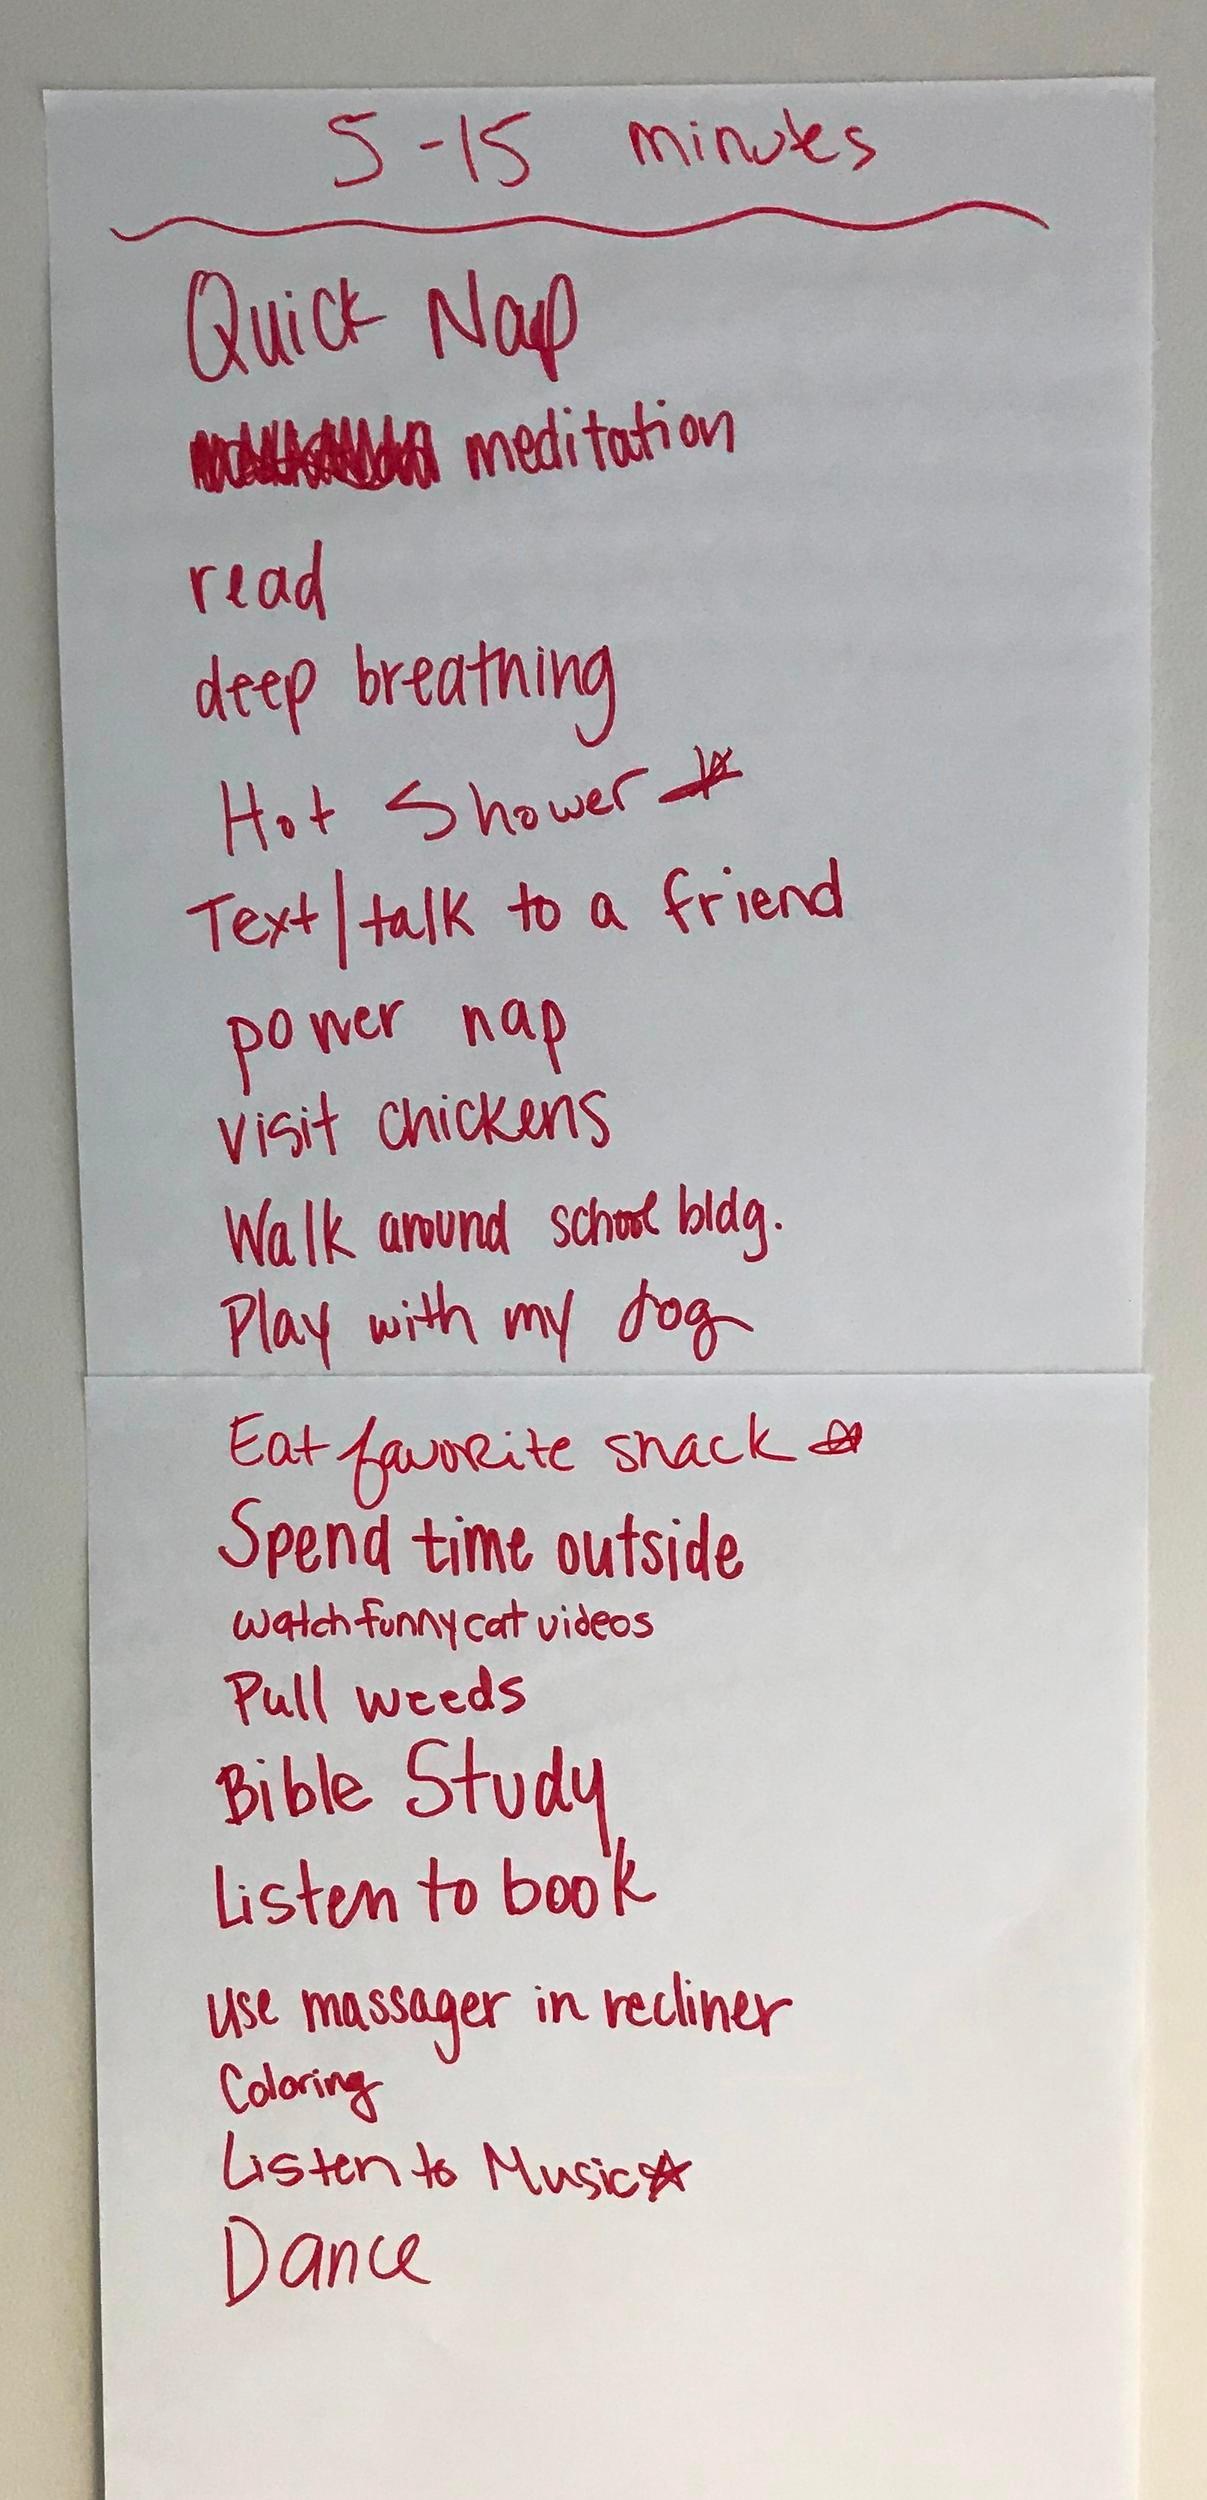 5-15 minutes
Quick Nap
meditation
read
deep breathing
Hot Shower
Text/talk to a friend
power nap
visit chickens
Walk around school bldg.
Play with my dog
Eat favorite snack
Spend time outside
watch funny cat videos
Pull weeds
Bible Study
Listen to book
use massager in recliner
Coloring
Listen to Music
Dance